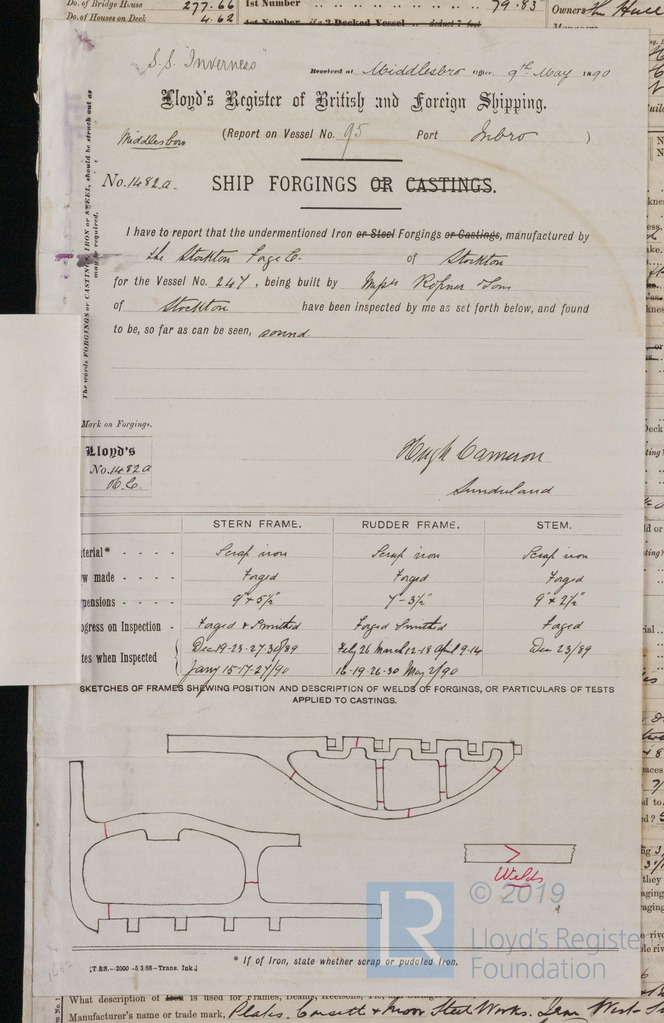 Do. of Bridge House 277.66 1st Number 79.83 Owners
Do. of Houses on Deck 4.62 1st Number if a 3 Decked Vessel deduct 7 feet
S.S. "Inverness"
Received at Middlesbro Office, 9th May 1890
Lloyd's Register of British and Foreign Shipping.
Middlesbro (Report on Vessel No. 95 Port Mbro )
No. 1482a. SHIP FORGINGS OR CASTINGS.
The words FORGINGS or CASTINGS, IRON or STEEL, should be struck out as may be required.
I have to report that the undermentioned Iron or Steel Forgings or Castings, manufactured by
the Stockton Forge Co. of Stockton
for the Vessel No. 247, being built by Messrs Ropner & Son
of Stockton have been inspected by me as set forth below, and found
to be, so far as can be seen, sound.
Mark on Forgings.
Lloyd's
No. 1482a
H.C.
Hugh Cameron
Sunderland
STERN FRAME. RUDDER FRAME. STEM.
terial* Scrap iron Scrap iron Scrap iron
w made Forged Forged Forged
ensions 9" x 5½" 7"-3½" 9" x 2½"
ogress on Inspection Forged & Smithed Forged Smithed Forged
tes when Inspected Dec 19-23-27-30/89 Feby 26 March 12-18 April 9-14 Dec 23/89
Jany 15-17-27/90 16-19-26-30 May 2/90
SKETCHES OF FRAMES SHEWING POSITION AND DESCRIPTION OF WELDS OF FORGINGS, OR PARTICULARS OF TESTS
APPLIED TO CASTINGS.
Welds
© 2019
LR
Lloyd's Register
Foundation
* If of Iron, state whether scrap or puddled Iron.
[T.&S.-2000-5.3.88-Trans. Ink.]
What description of Iron is used for Frames, Beams, Keelsons,
Manufacturer's name or trade mark, Plates. Consett & Moor Steel Works.